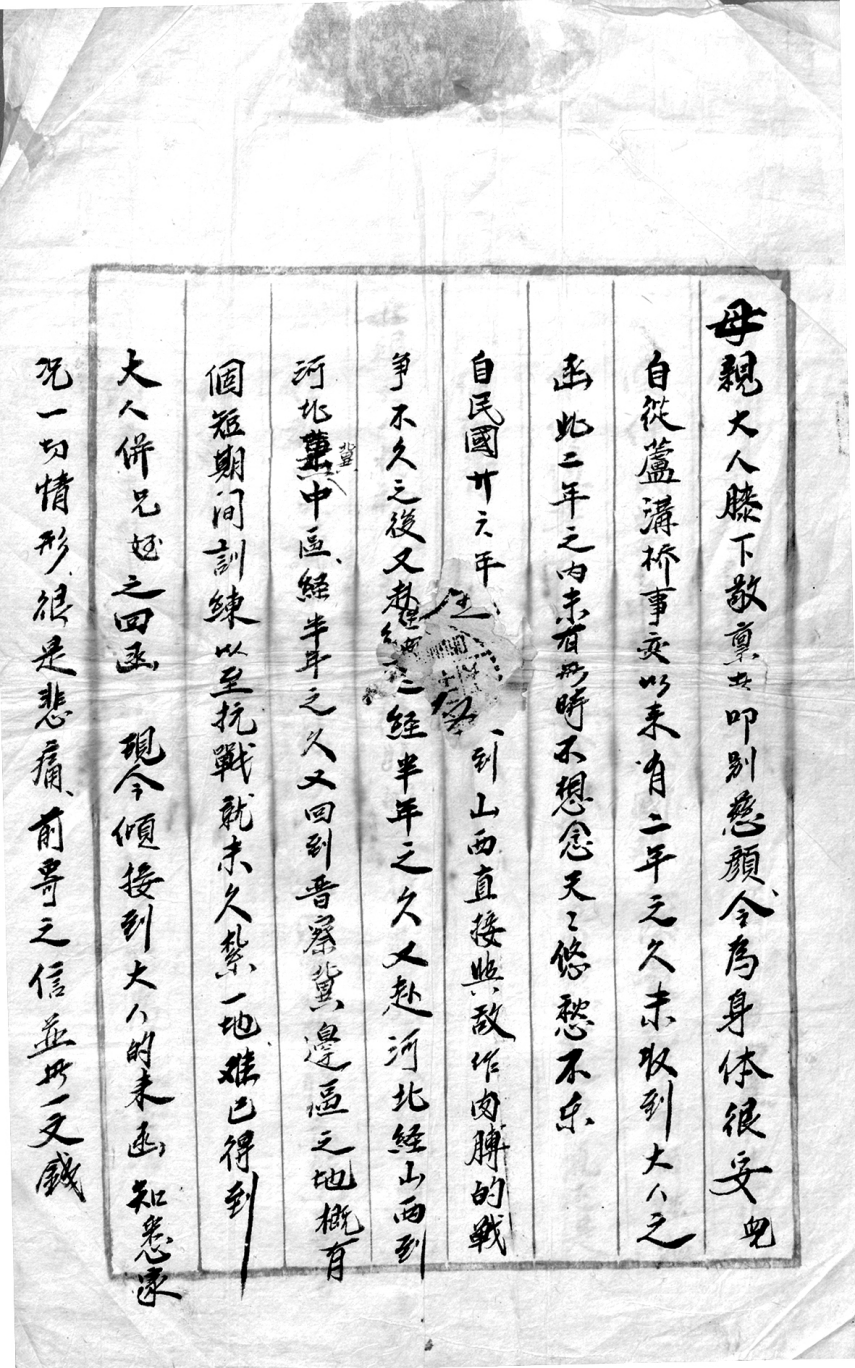 母親大人膝下敬禀者叩別慈顏今為身体很安兒
自從蘆溝桥事变以来有二年之久未収到大人之
函此二年之内未有無時不想念天〻悠愁不乐
自民國廿六年 到山西直接與敌作肉膊的戰
争不久之後又赴 経半年之久又赴河北経山西到
河北冀中區経半年之久又回到晋察冀邊區之地概有
個短期间訓練以至抗戰就未久紮一地难已得到
大人併兄姪之回函 現今傾接到大人的来函知悉家
况一切情形很是悲痛前寄之信並無一文錢